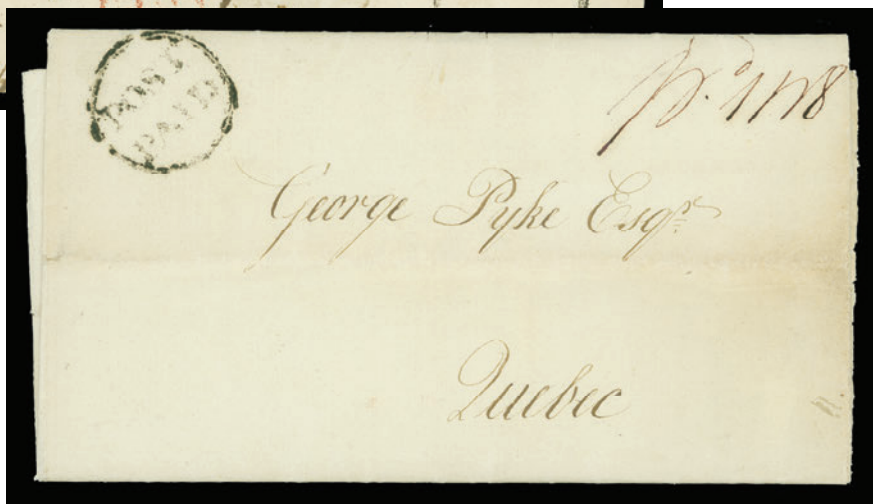 POST
PAID
George Pyke Esqr.
Quebec